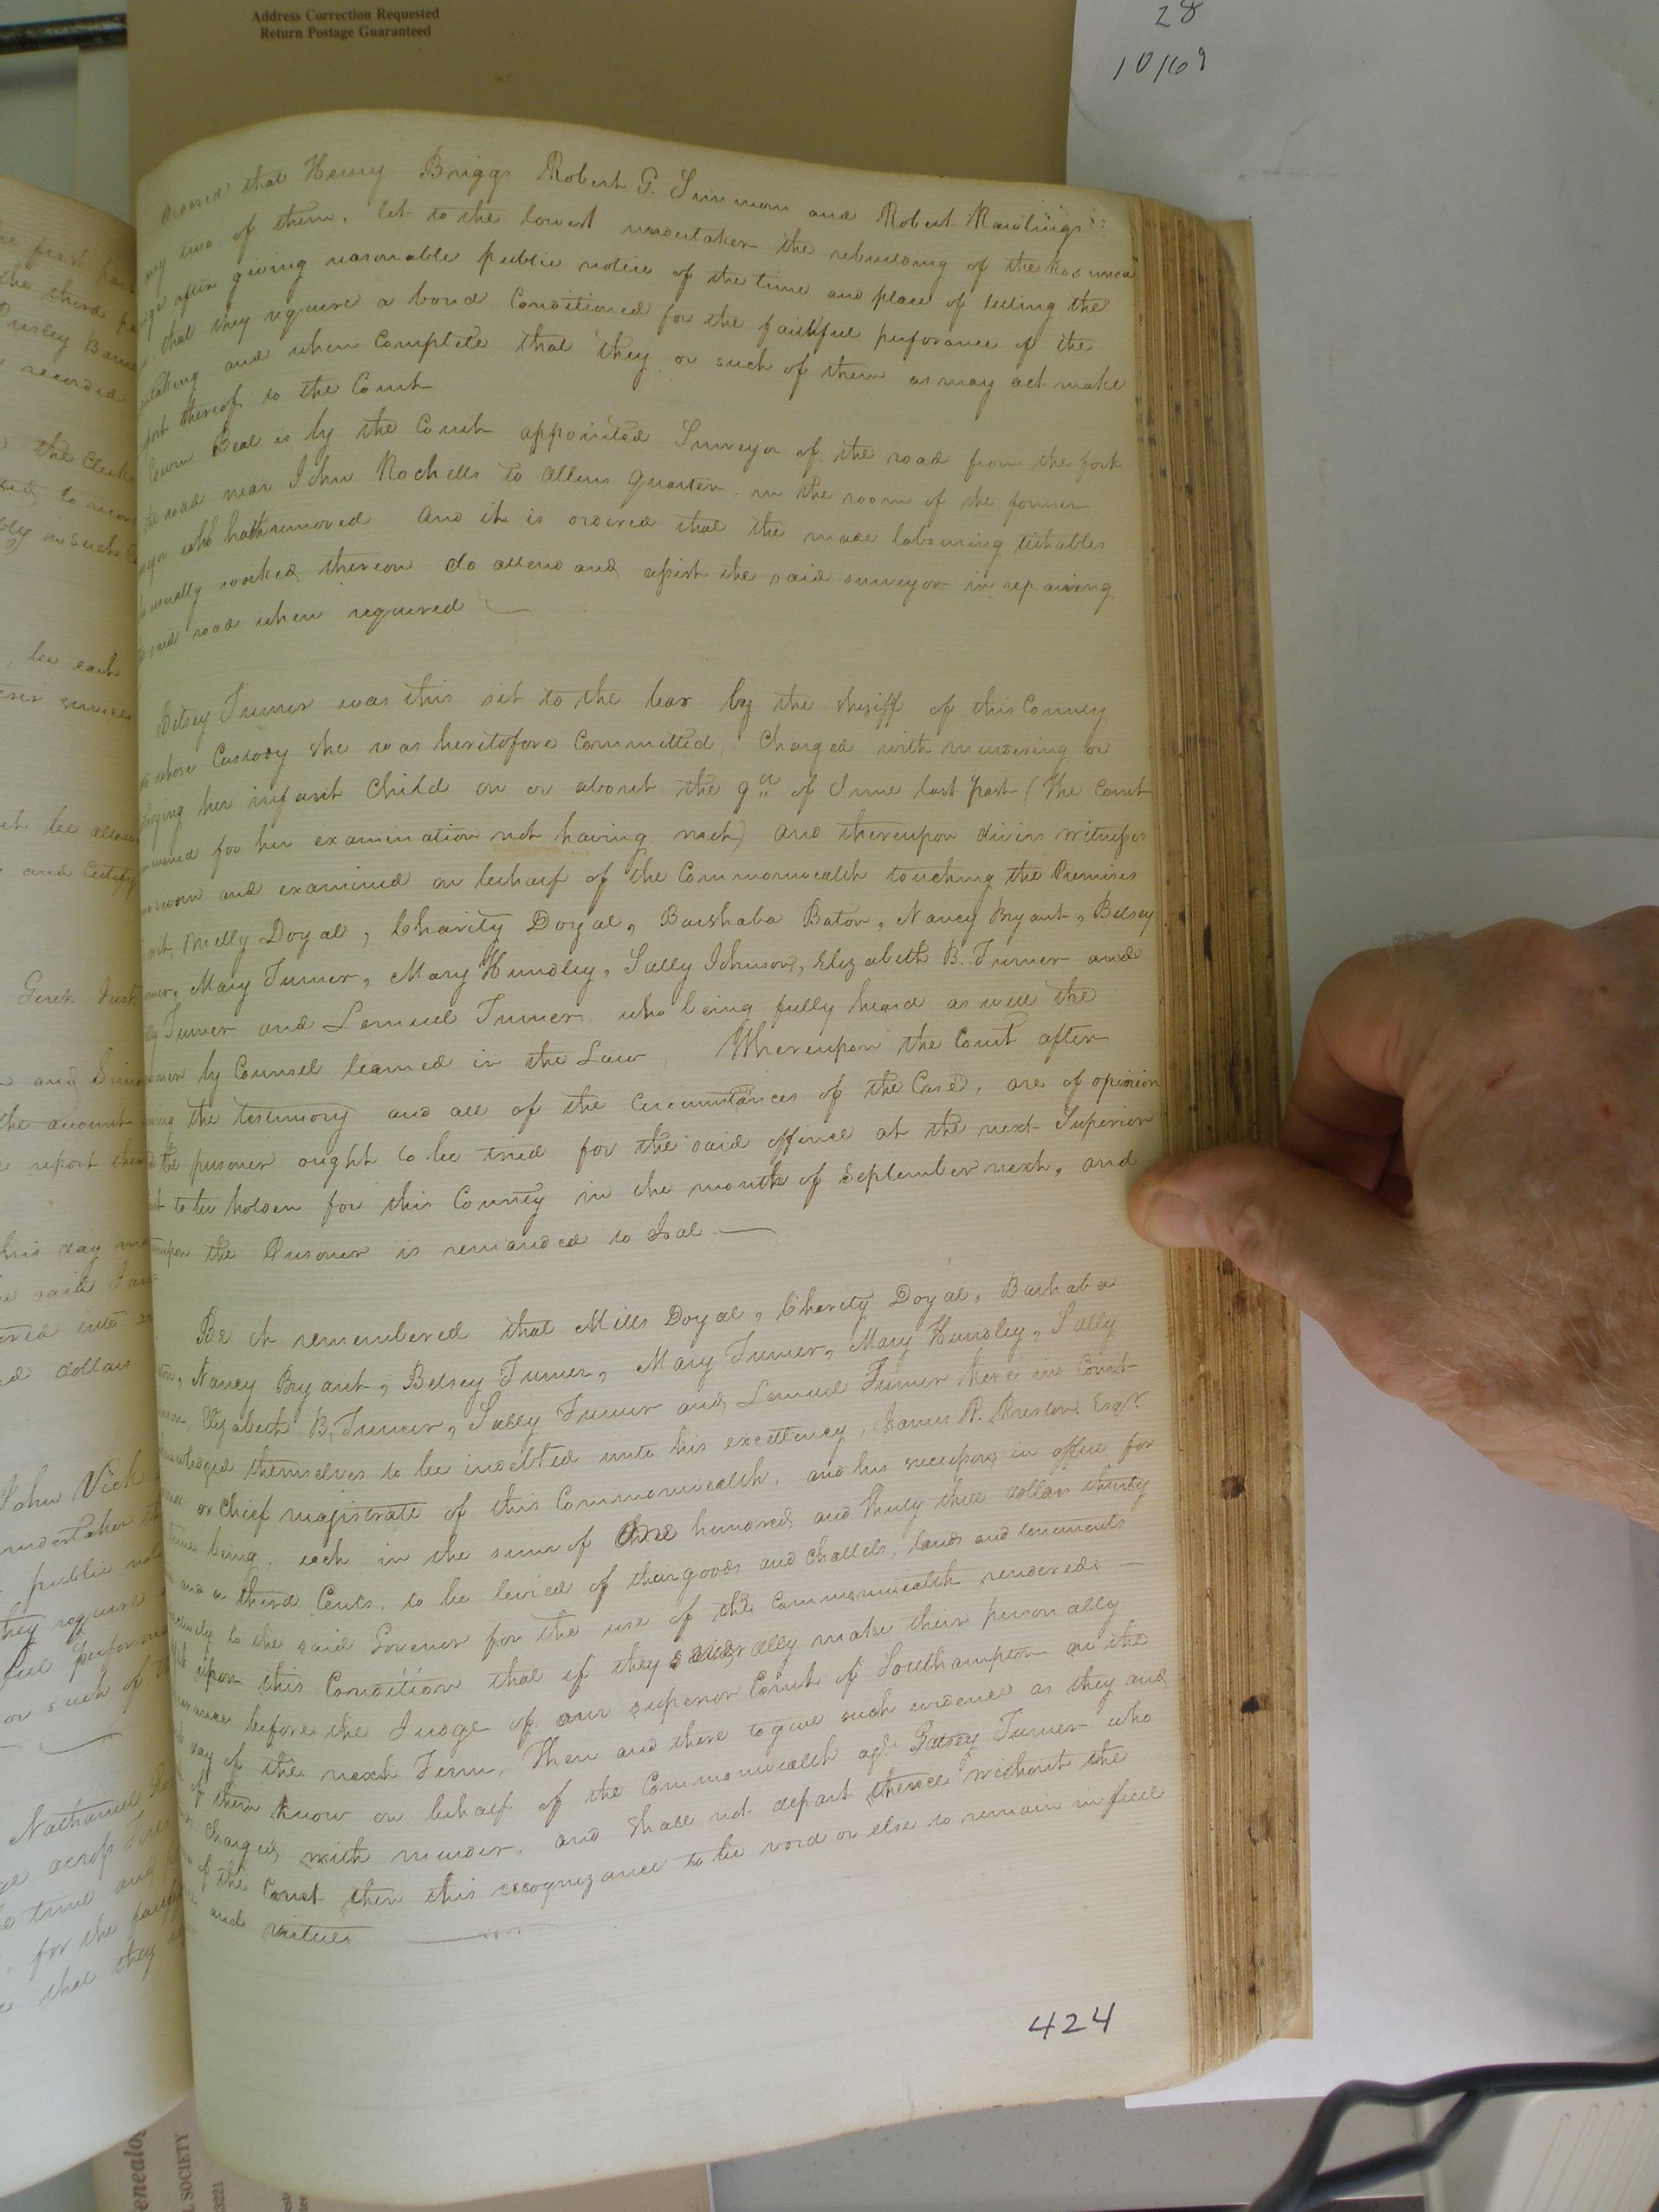 Address Correction Requested
Return Postage Guaranteed
28
10/69
Ordered that Henry Briggs Robert G. and Robert Rawlings
two of them, let to the lowest undertaker the rebuilding of the
after giving reasonable public notice of the time and place of letting the
that they require a bond Conditioned for the faithful perforance of the
and when Complete that they or such of them as may act make
thereof to the Court
Beal is by the Court appointed Surveyor of the road from the fork
the road near John Rochells to Allens quarter in the room of the former
who hath removed And it is ordered that the male labouring tithables
usually worked thereon do attend and assist the said surveyor in repairing
said road when required
Betsey Turner was this set to the bar by the sheriff of this County
whose Custody she was heretofore Committed, Charged with murdering or
her infant Child on or about the 9th of June last past (the Court
for her examination not having met) and thereupon divers witnesses
sworn and examined on behalf of the Commonwealth touching the Premises
wit, Milly Doyal, Charity Doyal, Barshaba Baton, Nancy Bryant, Betsey
Mary Turner, Mary Hundley, Sally Johnson, Elizabeth B. Turner and
Turner and Lemuel Turner, who being fully heard as well the
by Counsel learned in the Law, Whereupon the Court after
the testimony and all of the Circumstances of the Case, are of opinion
the prisoner ought to be tried for the said offence at the next Superior
to be holden for this County in the month of September next, and
the Prisoner is remanded to Jail
Be it remembered that Mills Doyal, Charity Doyal, Bashaba
Nancy Bryant, Betsey Turner, Mary Turner, Mary Hundley, Sally
Elizabeth B. Turner, Sally Turner and Lemuel Turner here in Court
themselves to be indebted unto his excellency, James P. Preston Esqr.
or Chief magistrate of this Commonwealth, and his successors in office for
being, each in the sum of One hundred and thirty three dollars thirty
and a third Cents, to be levied of their goods and chattels, lands and tenements
to the said Govenor for the use of the Commonwealth rendered
upon this Condition that if they severally make their personally
before the Judge of our superior Court of Southampton on the
day of the next Term, Then and there to give such evidence as they and
of them know on behalf of the Commonwealth agt. Betsey Turner who
Charged with murder, and shall not depart thence without the
of the Court then this recognizance to be void or else to remain in full
and virtue
424
the first
the third
recorded
the Clerk
be each
and
the amount
report
this day
said
dollars
John Vick
undertaker
public
they require
or such of
Nathaniel
time and
for the
that they
SOCIETY
3221